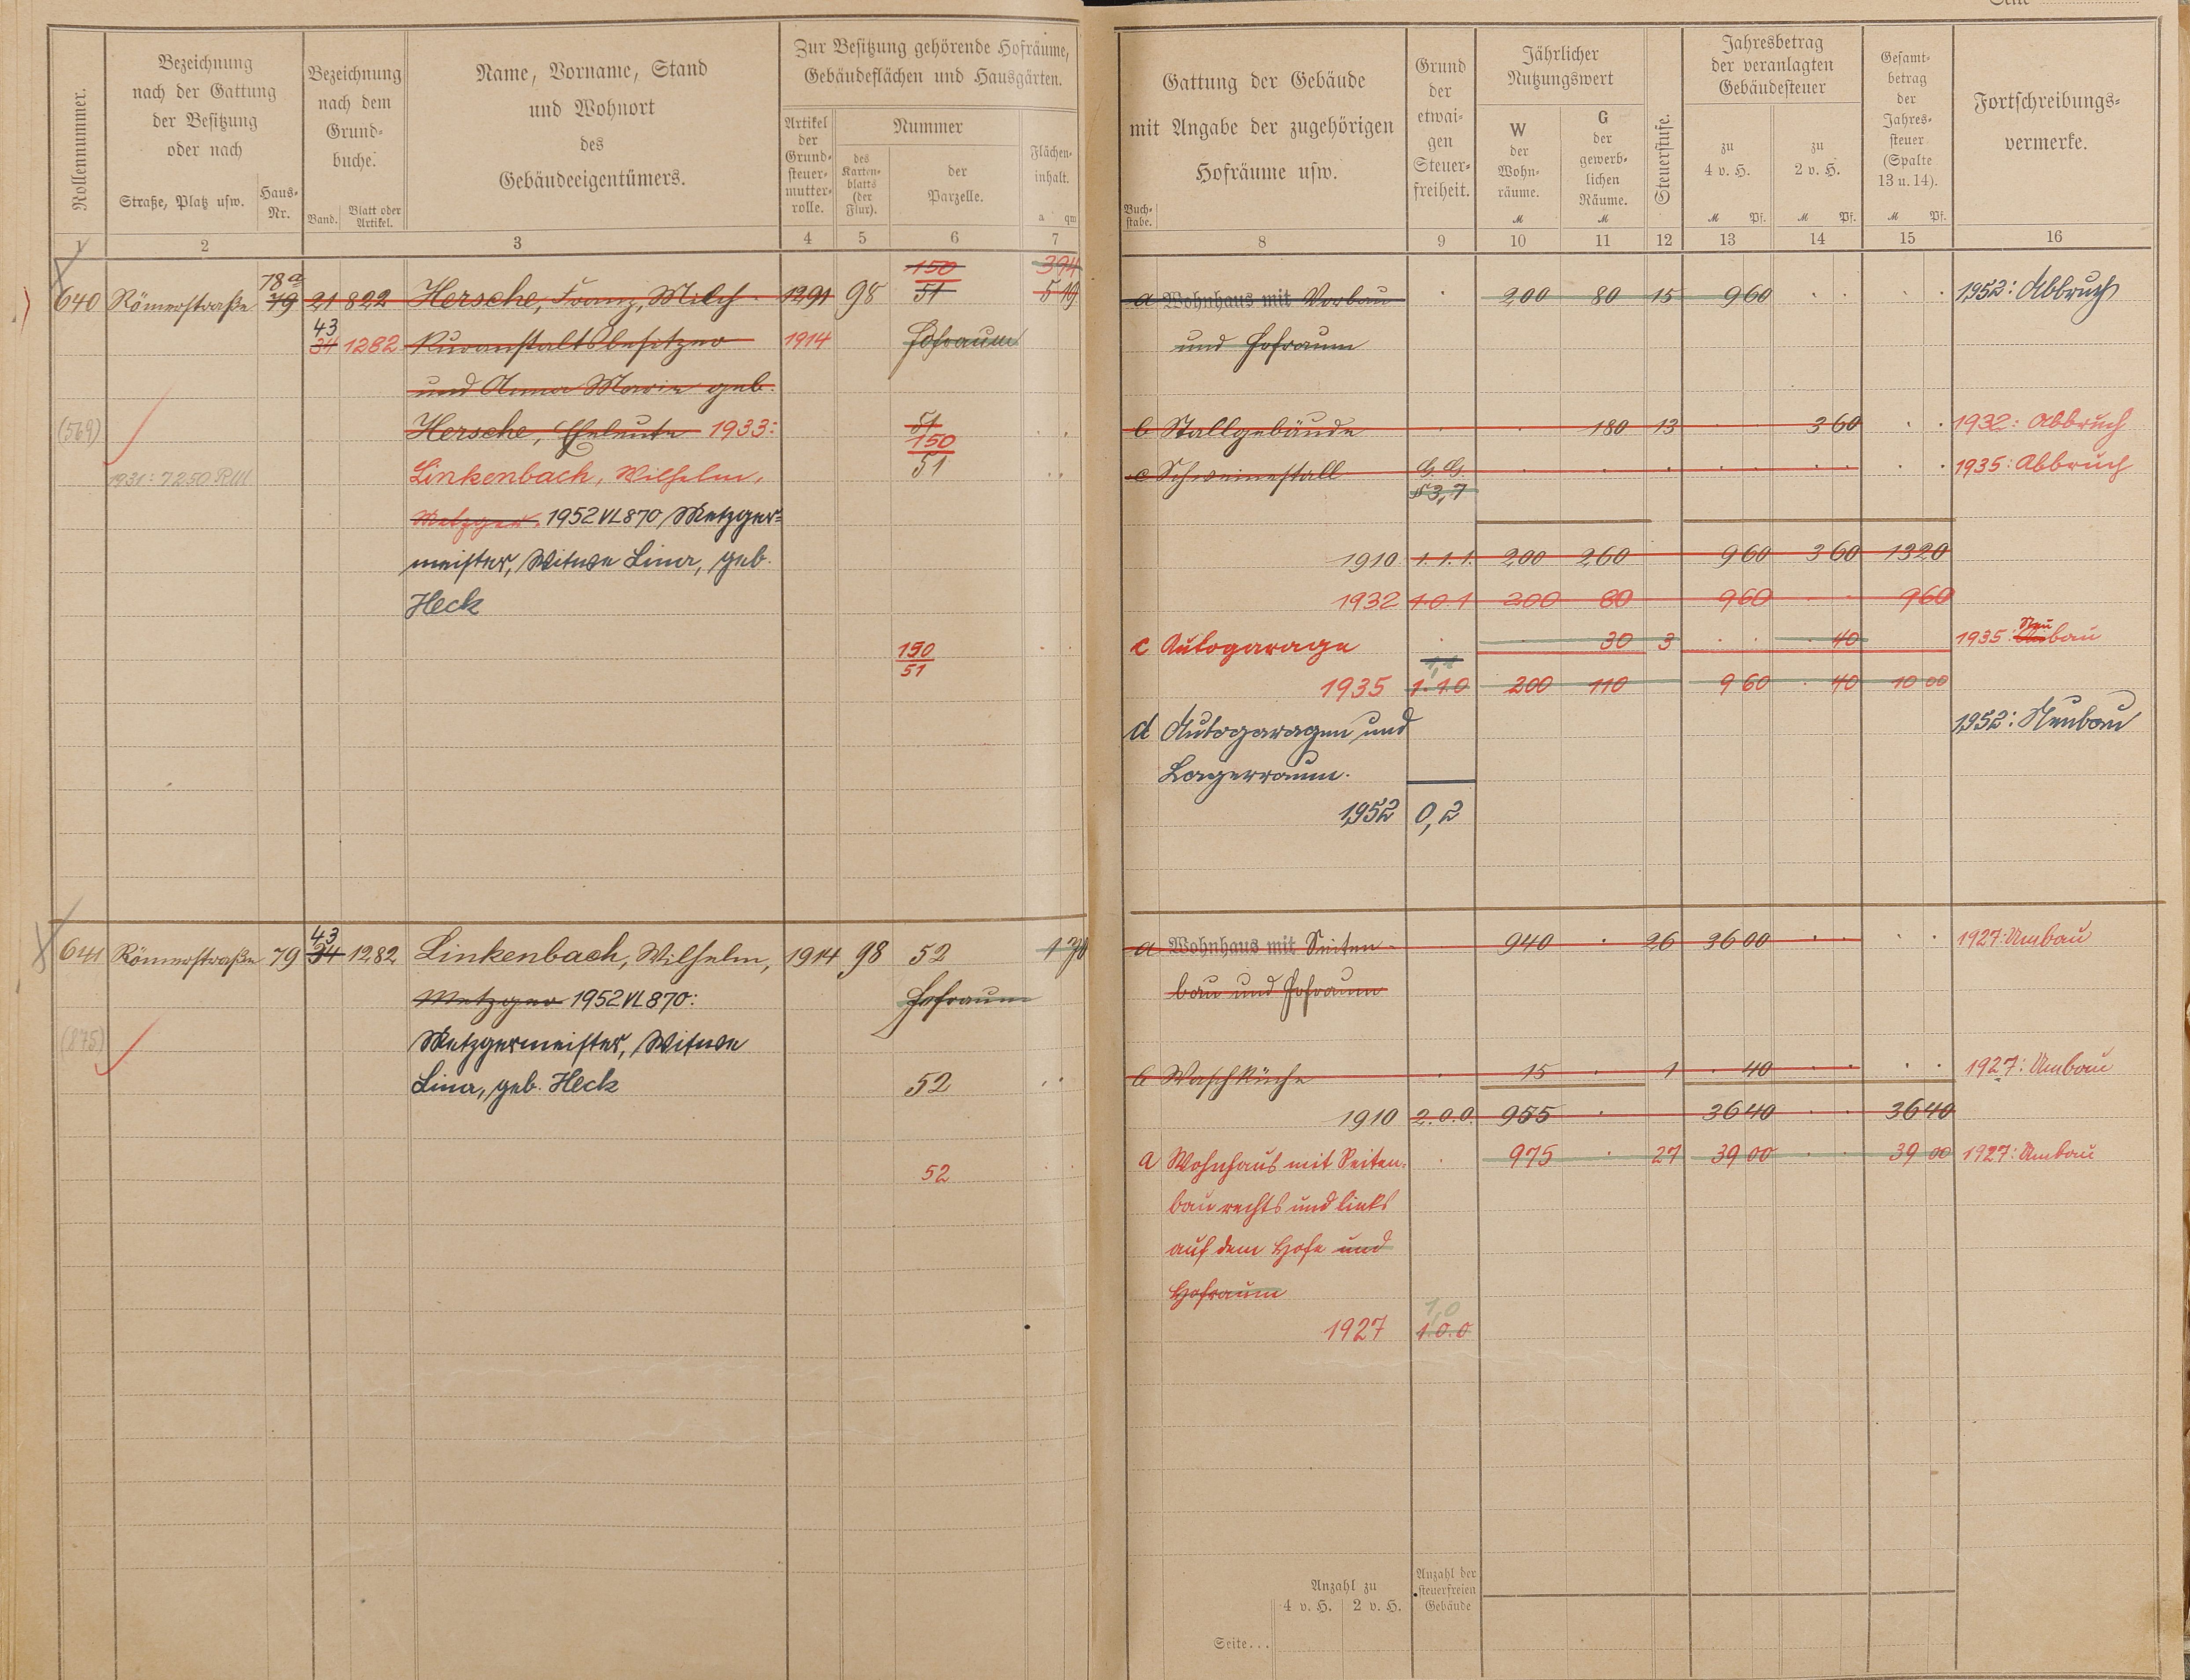 Seite
Rollennummer.
Bezeichnung
nach der Gattung
der Besitzung
oder nach
Straße, Platz usw.
Haus-
Nr.
Bezeichnung
nach dem
Grund-
buche.
Band.
Blatt oder
Artikel.
Name, Vorname, Stand
und Wohnort
des
Gebäudeeigentümers.
Zur Besitzung gehörende Hofräume,
Gebäudeflächen und Hausgärten.
Artikel
der
Grund-
steuer-
mutter-
rolle.
Nummer
des
Karten-
blatts
(der
Flur).
der
Parzelle.
Flächen-
inhalt.
a qm
1 2 3 4 5 6 7
78a 150 394
640 Römerstraße 79 21 822 Hersche, Franz, Milch- 1291 98 51 5 19
43
34 1282 Kuranstaltsbesitzer 1914 Hofraum
und Anna Maria geb.
(569) Hersche, Eheleute 1933: 51
150
1931: 7250 RM Linkenbach, Wilhelm, 51
Metzger, 1952 VL 870 Metzger-
meister, Witwe Lina, geb.
Heck
150
51
43
641 Römerstraße 79 34 1282 Linkenbach, Wilhelm, 1914 98 52
Metzger 1952 VL 870: Hofraum
(875) Metzgermeister, Witwe
Lina, geb. Heck 52
52
Gattung der Gebäude
mit Angabe der zugehörigen
Hofräume usw.
Buch-
stabe.
Grund
der
etwai-
gen
Steuer-
freiheit.
Jährlicher
Nutzungswert
W
der
Wohn-
räume.
M
G
der
gewerb-
lichen
Räume.
M
Steuerstufe.
Jahresbetrag
der veranlagten
Gebäudesteuer
zu
4 v. H.
M Pf.
zu
2 v. H.
M Pf.
Gesamt-
betrag
der
Jahres-
steuer
(Spalte
13 u. 14).
M Pf.
Fortschreibungs-
vermerke.
8 9 10 11 12 13 14 15 16
a Wohnhaus mit Vorbau 200 80 15 9 60 1952: Abbruch
und Hofraum
b Stallgebäude 180 13 3 60 1932: Abbruch
c Schweinestall G.G. 1935: Abbruch
§ 3,7
1910 1.1.1. 200 260 9 60 3 60 13 20
1932 1.0.1 200 80 9 60 9 60
c Autogarage 30 3 40 1935: Neubau
1,1
1935 1.1.0 200 110 9 60 40 10 00
d Autogaragen und 1952: Neubau
Lagerraum.
1952 0,2
a Wohnhaus mit Seiten- 940 26 36 00 1927: Umbau
bau und Hofraum
b Waschküche 15 1 40 1927: Umbau
1910 2.0.0. 955 36 40 36 40
a Wohnhaus mit Seiten- 975 27 39 00 39 00 1927: Umbau
bau rechts und links
auf dem Hofe und
Hofraum
1,0
1927 1.0.0
Anzahl zu
4 v. H. 2 v. H.
Anzahl der
steuerfreien
Gebäude
Seite...